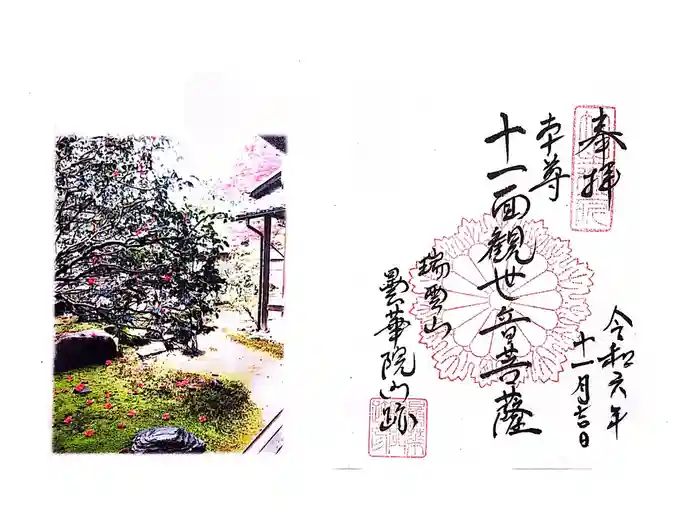 奉拝
本尊
十一面観世音菩薩
瑞雲山
曇華院門跡
令和六年
十一月吉日